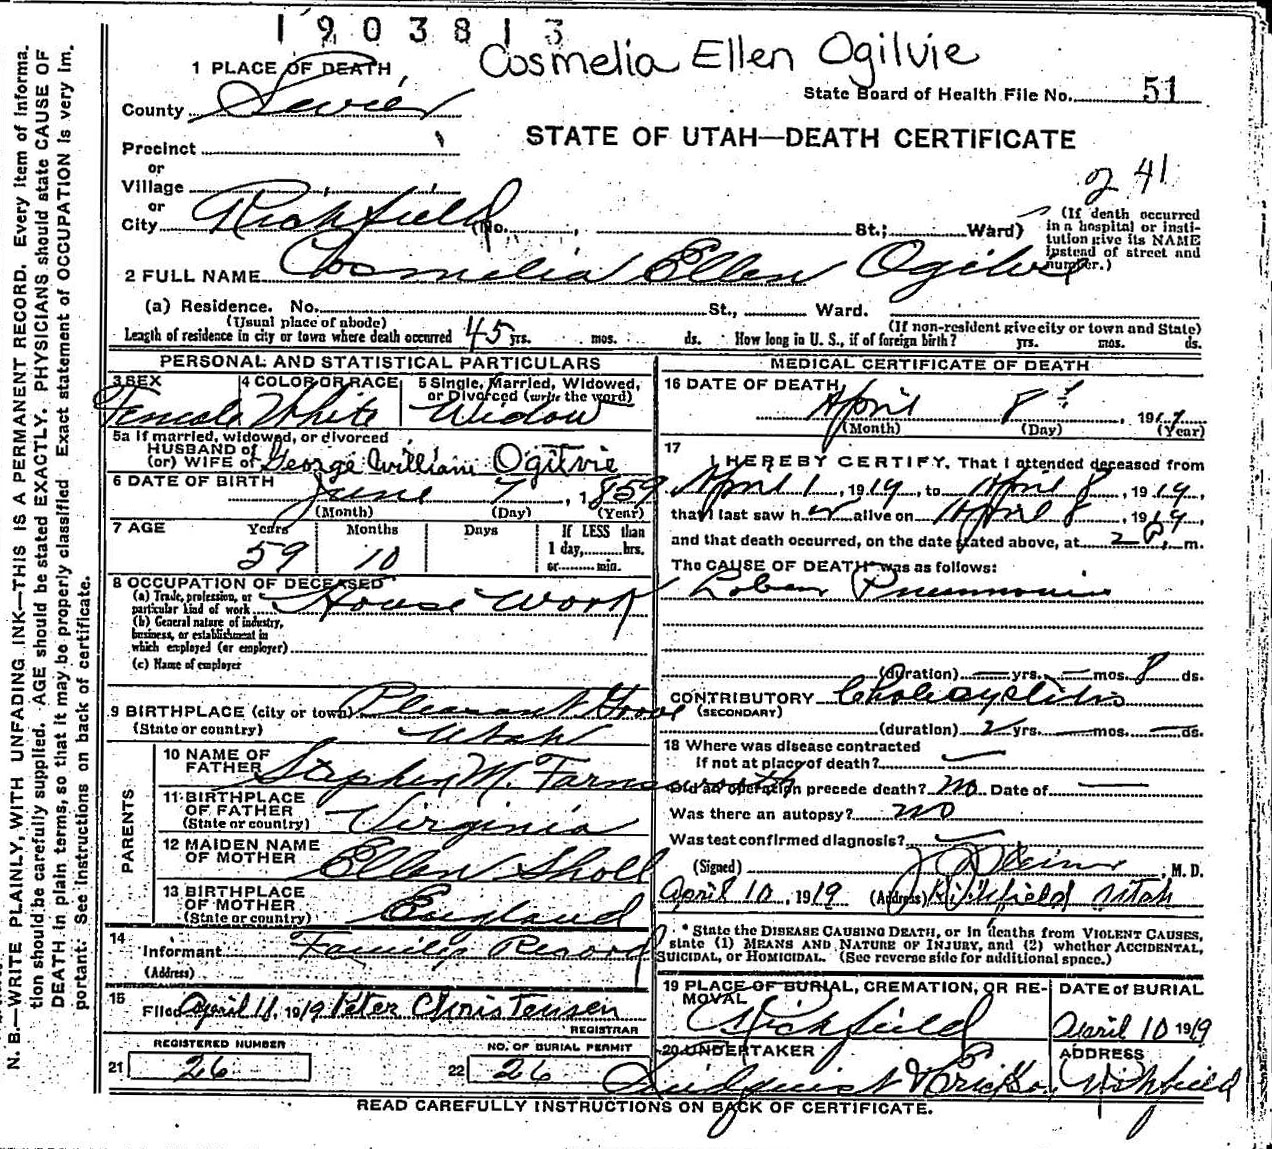 1903813
Cosmelia Ellen Ogilvie
1 PLACE OF DEATH
State Board of Health File No. 51
County Sevier
STATE OF UTAH—DEATH CERTIFICATE
Precinct
or
Village
241
or
City Richfield (No. , St.; Ward)
(If death occurred
in a hospital or insti-
tution give its NAME
instead of street and
number.)
2 FULL NAME Cosmelia Ellen Ogilvie
(a) Residence. No. St., Ward.
(Usual place of abode) (If non-resident give city or town and State)
Length of residence in city or town where death occurred 45 yrs. mos. ds. How long in U. S., if of foreign birth? yrs. mos. ds.
PERSONAL AND STATISTICAL PARTICULARS
3 SEX 4 COLOR OR RACE 5 Single, Married, Widowed,
or Divorced (write the word)
Female White Widow
5a If married, widowed, or divorced
HUSBAND of
(or) WIFE of George William Ogilvie
6 DATE OF BIRTH June 7, 1859
(Month) (Day) (Year)
7 AGE Years Months Days If LESS than
1 day, hrs.
or min.
59 10
8 OCCUPATION OF DECEASED
(a) Trade, profession, or
particular kind of work House Work
(b) General nature of industry,
business, or establishment in
which employed (or employer)
(c) Name of employer
9 BIRTHPLACE (city or town) Pleasant Grove
(State or country) Utah
PARENTS
10 NAME OF
FATHER Stephen M. Farnsworth
11 BIRTHPLACE
OF FATHER
(State or country) Virginia
12 MAIDEN NAME
OF MOTHER Ellen Sholl
13 BIRTHPLACE
OF MOTHER
(State or country) England
14
Informant Family Record
(Address)
15
Filed April 11, 1919 Peter Christensen
REGISTRAR
REGISTERED NUMBER NO. OF BURIAL PERMIT
21 26 22 26
MEDICAL CERTIFICATE OF DEATH
16 DATE OF DEATH
April 8, 1919
(Month) (Day) (Year)
17
I HEREBY CERTIFY, That I attended deceased from
April 1, 1919, to April 8, 1919,
that I last saw her alive on April 8, 1919,
and that death occurred, on the date stated above, at 2 P. m.
The CAUSE OF DEATH* was as follows:
Lobar Pneumonia
(duration) — yrs. — mos. 8 ds.
CONTRIBUTORY Cholecystitis
(SECONDARY)
(duration) 2 yrs. — mos. — ds.
18 Where was disease contracted
if not at place of death?
Did an operation precede death? No Date of —
Was there an autopsy? no
Was test confirmed diagnosis?
(Signed) M. D.
April 10, 1919 (Address) Richfield Utah
* State the DISEASE CAUSING DEATH, or in deaths from VIOLENT CAUSES,
state (1) MEANS AND NATURE OF INJURY, and (2) whether ACCIDENTAL,
SUICIDAL, or HOMICIDAL. (See reverse side for additional space.)
19 PLACE OF BURIAL, CREMATION, OR RE-
MOVAL
Richfield
DATE of BURIAL
April 10 1919
20 UNDERTAKER
ADDRESS
Richfield
READ CAREFULLY INSTRUCTIONS ON BACK OF CERTIFICATE.
N. B.—WRITE PLAINLY, WITH UNFADING INK—THIS IS A PERMANENT RECORD. Every item of informa-
tion should be carefully supplied. AGE should be stated EXACTLY. PHYSICIANS should state CAUSE OF
DEATH in plain terms, so that it may be properly classified. Exact statement of OCCUPATION is very im-
portant. See instructions on back of certificate.